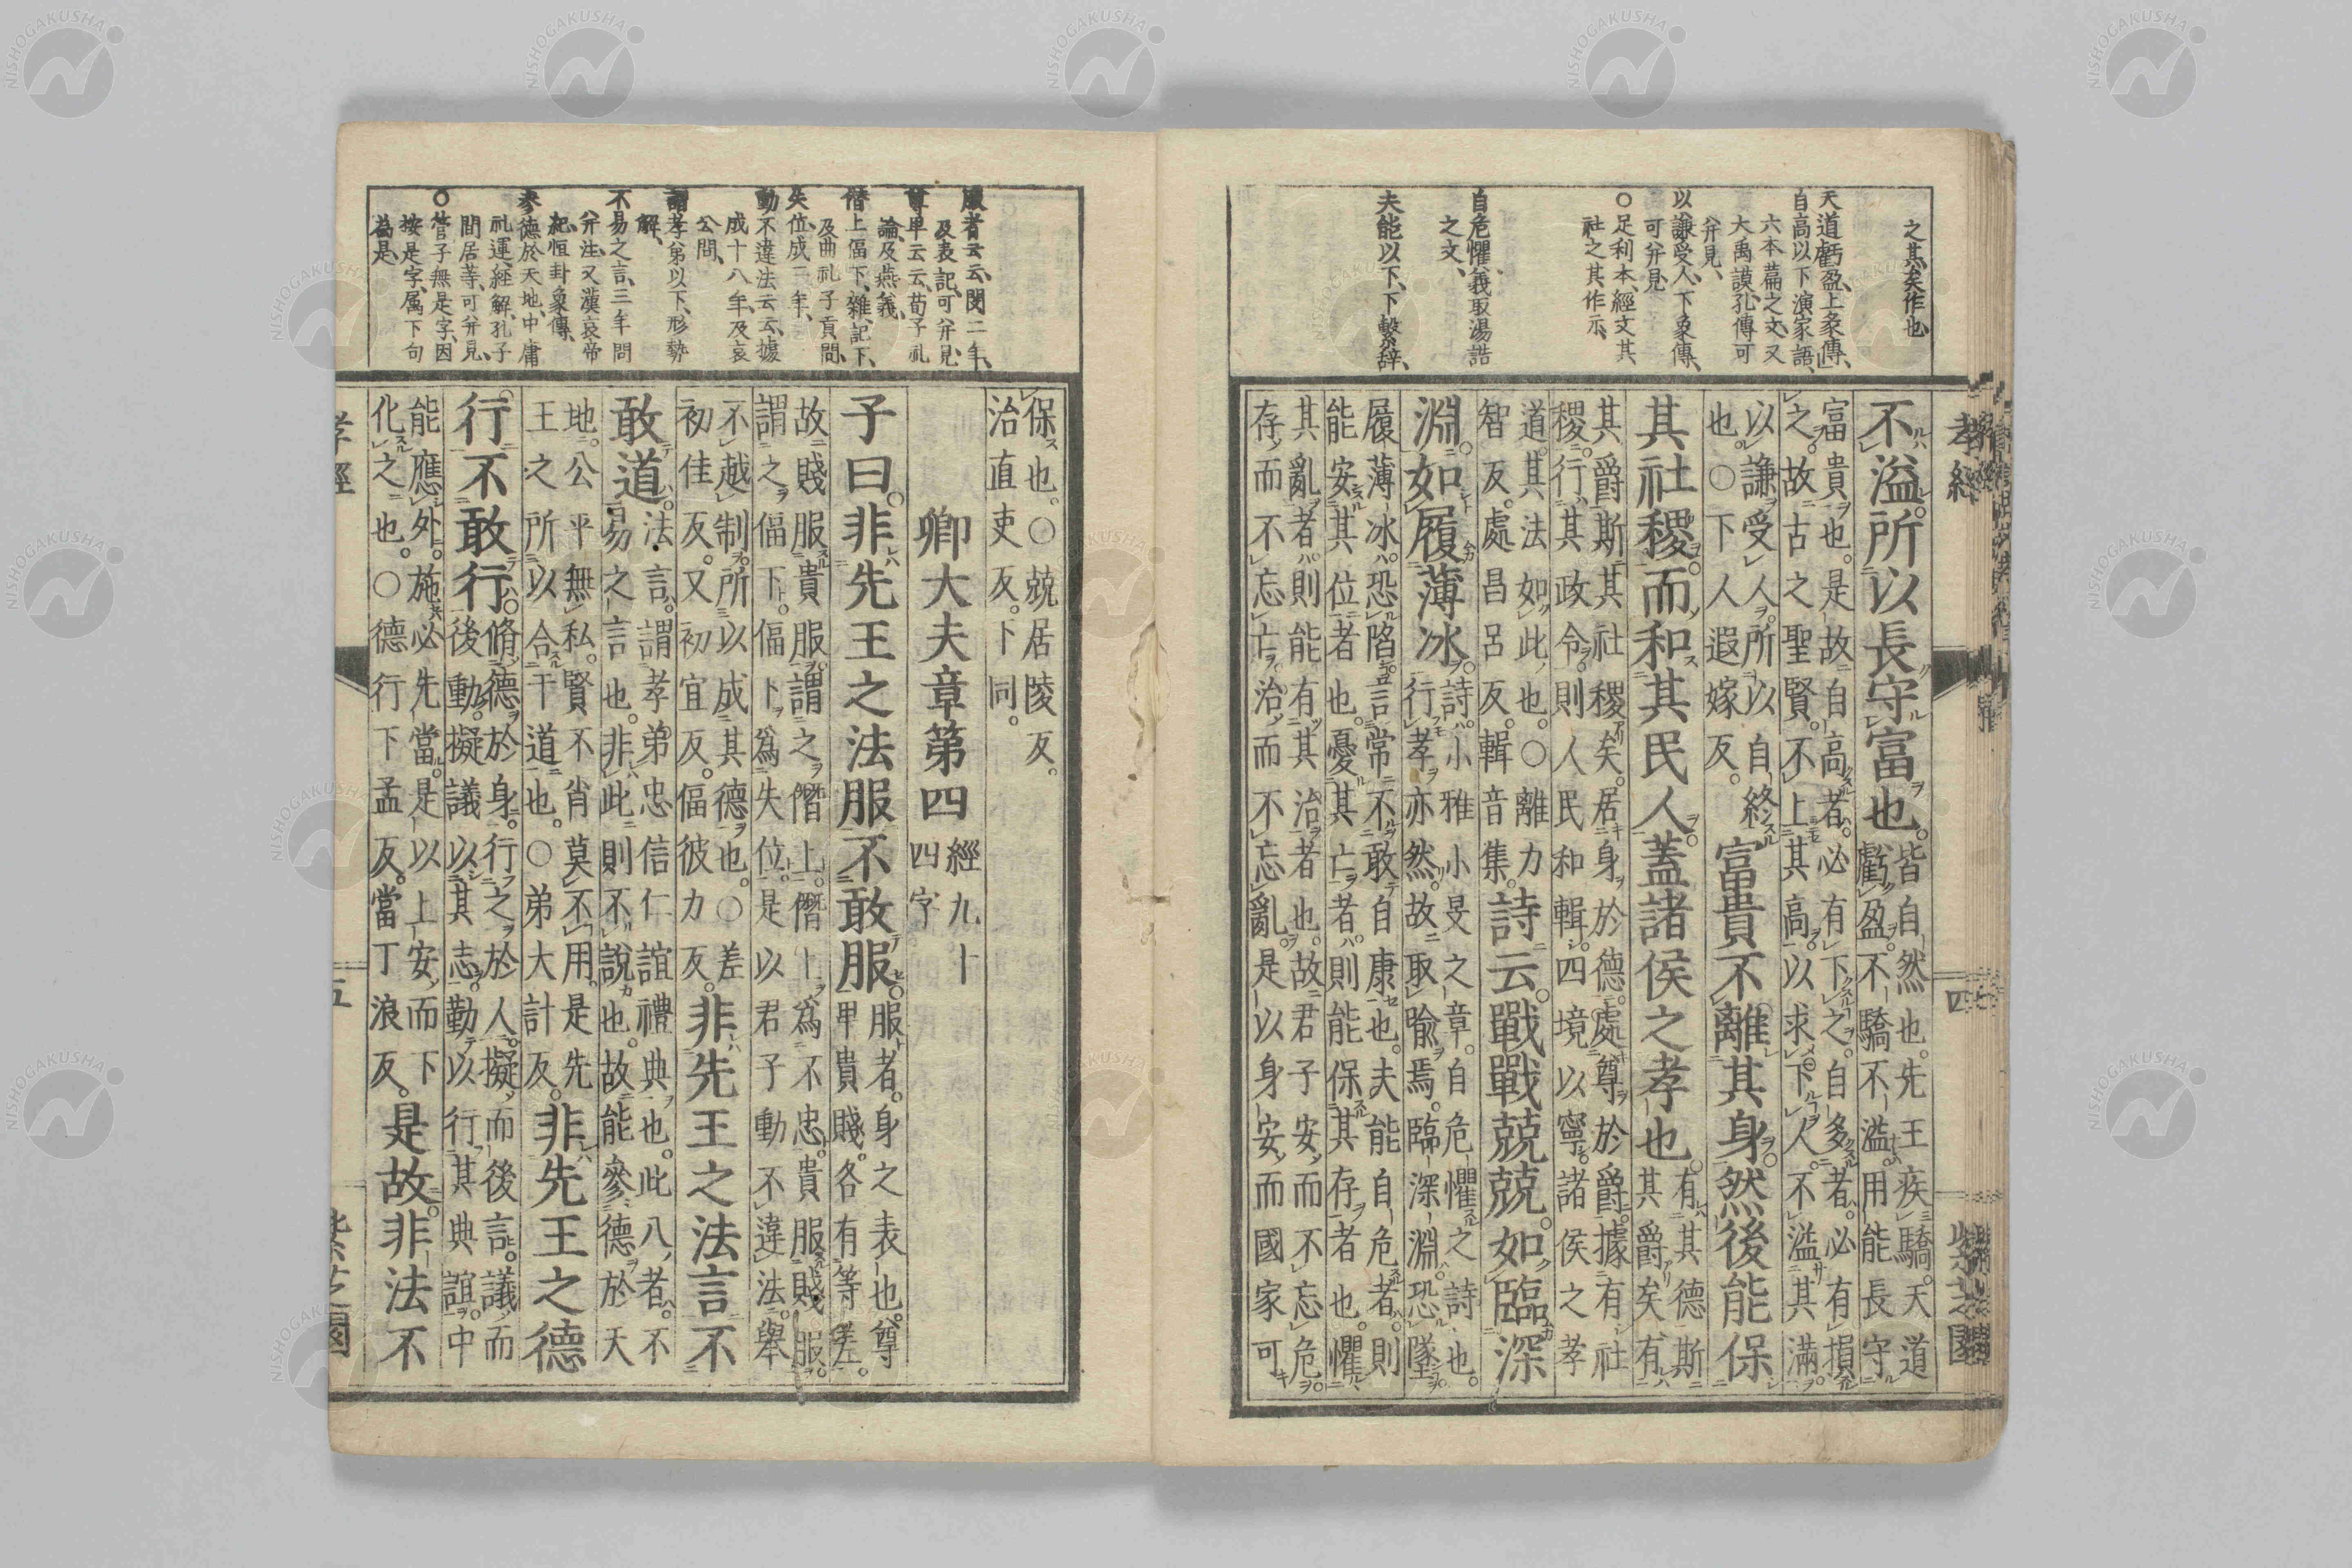 之其矣作也
天道虧盈上彖傳
自高以下演家語
六本篇之文又
大禹謨孔傳可
幷見
以謙受人下彖傳
可幷見
○足利本經文其
社之其作示
自危懼義取湯誥
之文
夫能以下下繫辞
不溢。所以長守富也。
皆自然也。先王疾驕。天道
虧盈。不驕不溢。用能長守
富貴也。是故自高者。必有下之。自多者。必有損
之。故古之聖賢。不上其高。以求下人。不溢其滿
以謙受人。所以自終
也。○下人遐嫁反。
富貴不離其身。然後能保
其社稷。而和其民人。蓋諸侯之孝也。
有其德斯
其爵矣有
其爵斯其社稷矣。居身於德。處尊於爵。據有社
稷。行其政令。則人民和輯。四境以寧。諸侯之孝
道。其法如此也。○離力
智反。處昌呂反。輯音集。
詩云。戰戰兢兢。如臨深
淵。如履薄冰。
詩小雅小旻之章。自危懼之詩也。
行孝亦然。故取喩焉。臨深淵。恐墜。
履薄冰。恐陷。言常不敢自康也。夫能自危者。則
能安其位者也。憂其亡者。則能保其存者也。懼
其亂者。則能有其治者也。故君子安而不忘危。
存而不忘亡。治而不忘亂。是以身安而國家可
孝經
四
紫芝園
服者云云閔二年
及表記可幷見
尊卑云云荀子礼
論及燕義
僭上偪下雜記下
及曲礼子貢問
失位成二年
動不違法云云據
成十八年及哀
公問
謂孝弟以下形勢
解
不易之言三年問
幷注又漢哀帝
紀恒卦彖傳
參德於天地中庸
礼運經解孔子
間居等可幷見
○管子無是字因
按是字属下句
爲是
保也。○兢居陵反。
治直吏反。下同。
卿大夫章第四
經九十
四字
子曰。非先王之法服。不敢服。
服者。身之表也。尊
卑貴賤。各有等差。
故賤服貴服。謂之僭上。僭上爲不忠。貴服賤服。
謂之偪下。偪下爲失位。是以君子動不違法。舉
不越制。所以成其德也。○差
初佳反。又初宜反。偪彼力反。
非先王之法言。不
敢道。
法言。謂孝弟忠信仁誼禮典也。此八者。不
易之言也。非此則不說也。故能參德於天
地。公平無私。賢不肖莫不用。是先
王之所以合干道也。○弟大計反。
非先王之德
行。不敢行。
脩德於身。行之於人。擬而後言。議而
後動。擬議以其志。動以行其典誼。中
能應外。施必先當。是以上安而下
化之也。○德行下孟反。當丁浪反。
是故非法不
孝經
五
紫芝園
NISHOGAKUSHA